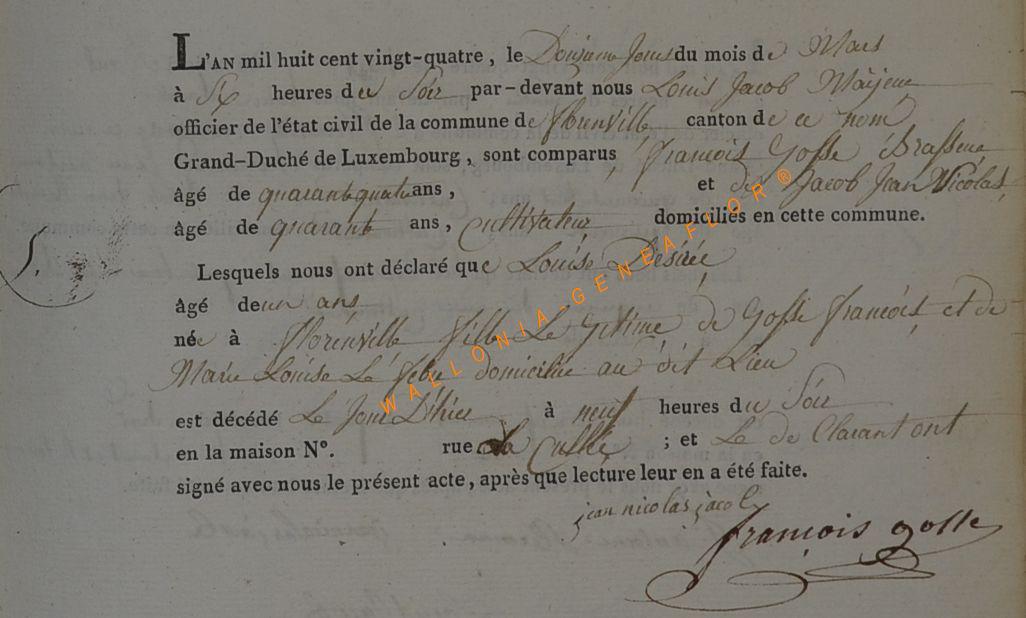 L'AN mil huit cent vingt-quatre, le Douzieme Jour du mois de Mars
à Six heures du Soir par-devant nous Louis Jacob Mäyeur
officier de l'état civil de la commune de florenville canton de ce nom
Grand-Duché de Luxembourg, sont comparus françois Gosse Brasseur
âgé de quarant quatre ans, et Jacob Jean Nicolas
âgé de quarant ans, Cultivateur domiciliés en cette commune.
5.
Lesquels nous ont déclaré que Louise Désirée
âgé de un ans
née à florenville fille Le Gitime de Gosse françois et de
Marie Louise Le febvre domicilié au dit Lieu
est décédé Le Jour D'hier à neuf heures du Soir
en la maison N°. rue La Culée ; et Le de Clarant ont
signé avec nous le présent acte, après que lecture leur en a été faite.
jean nicolas jacob
françois gosse
WALLONIA-GENEAFLOR®